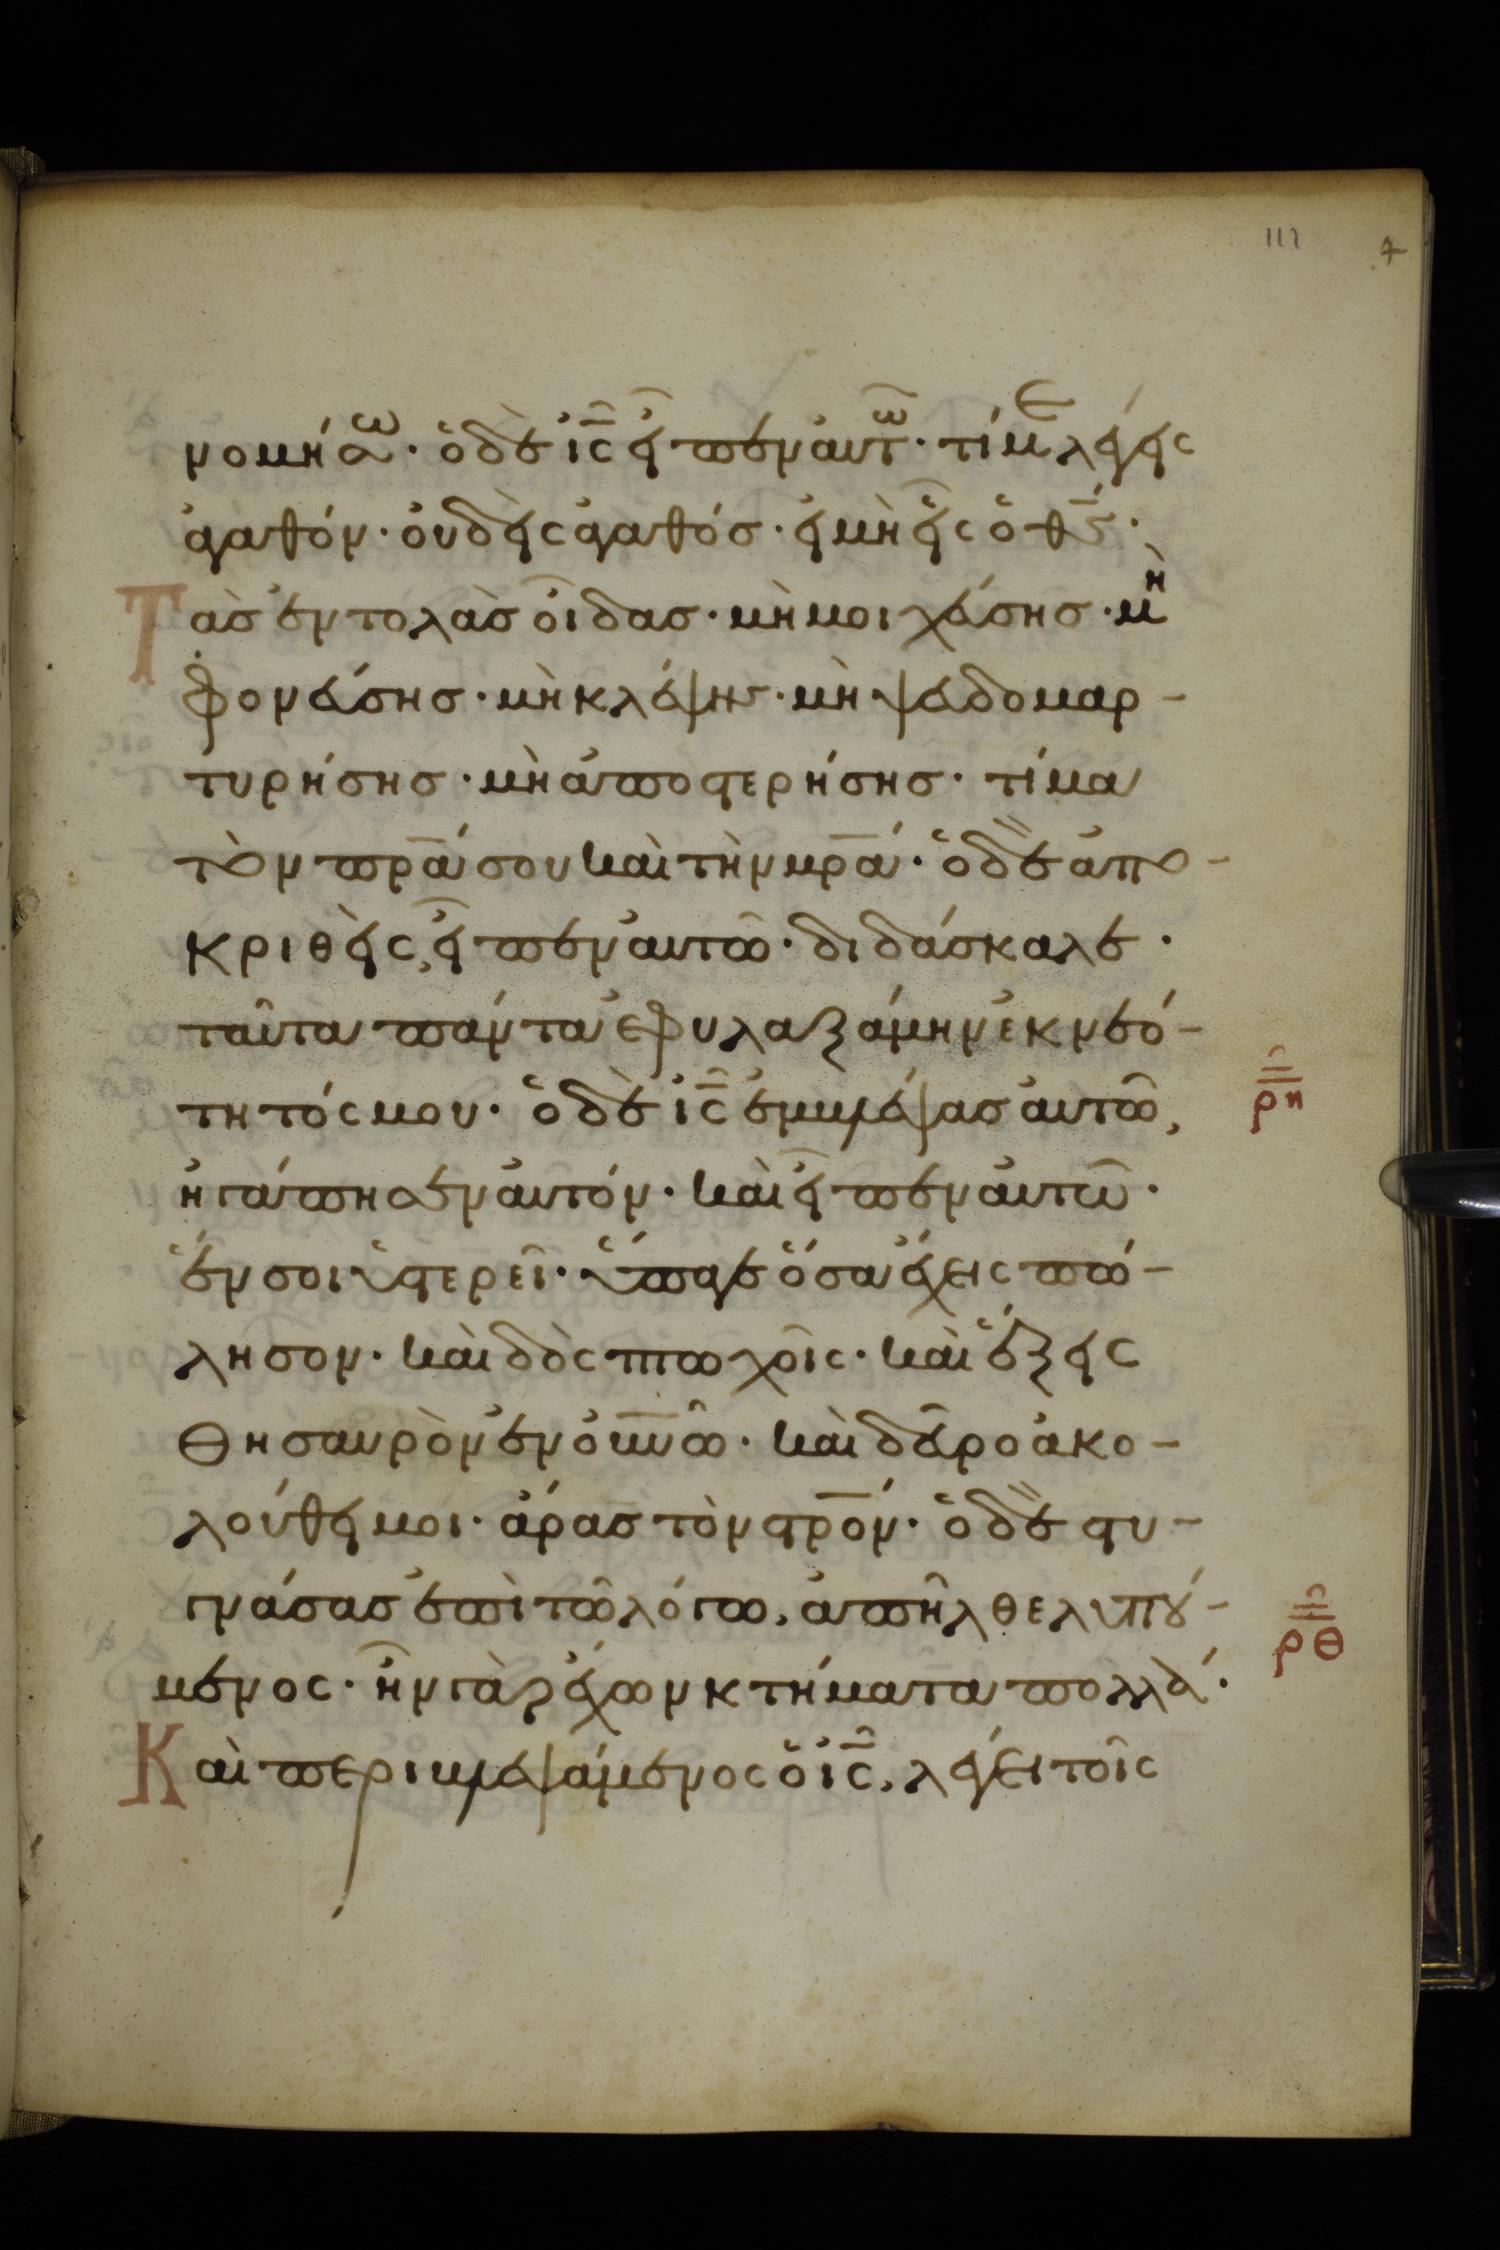 111 7
νομήσω· ὁ δὲ ις̅ εἶπεν αυτῶ· τί με λέγεις
ἀγαθόν· ουδεὶς ἀγαθόσ· ει μὴ εἷς ὁ θς̅·
Τὰσ εντολὰσ οἶδασ· μὴ μοιχεύσησ· μὴ
φονεύσησ· μὴ κλέψης· μὴ ψευδομαρ-
τυρήσησ· μὴ ἀποστερήσησ· τίμα
τὸν πρ̅α σου καὶ τὴν μρ̅α· ὁ δὲ ἀπο-
κριθεὶς, εἶπεν αυτῶ· διδάσκαλε·
ταῦτα πάντα ἐφυλαξάμην ἐκ νεό-
τητός μου· ὁ δὲ ις̅ ἐμβλέψασ αυτῶ,
ρη
ἠγάπησεν αυτόν· καὶ εἶπεν αυτῶ·
ἕν σοι ὑστερεῖ· ὕπαγε ὅσα ἔχεις πώ-
λησον· καὶ δὸς πτωχοῖς· καὶ ἕξεις
θησαυρὸν ἐν ουν̅ῶ· καὶ δεῦρο ἀκο-
λούθει μοι· ἄρασ τὸν στρ̅ον· ὁ δὲ στυ-
γνάσασ ἐπὶ τῶ λόγω, ἀπῆλθε λυπού-
ρθ
μενος· ἦν γὰρ ἔχων κτήματα πολλά·
Καὶ περιβλεψάμενος ὁ ις̅, λέγει τοῖς